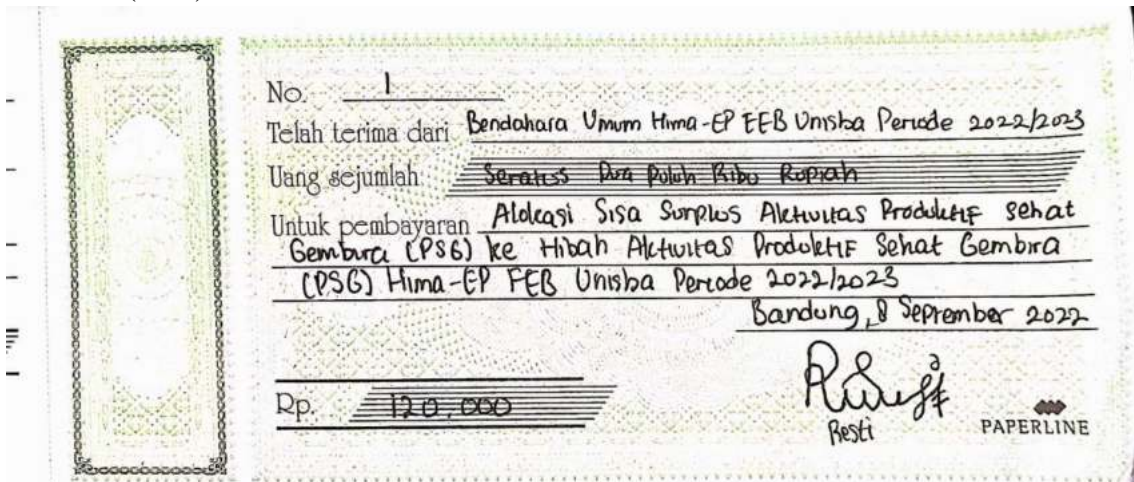 No. 1
Telah terima dari Bendahara Umum Hima-EP FEB Unisba Periode 2022/2023
Uang sejumlah Seratus Dua Puluh Ribu Rupiah
Untuk pembayaran Alokasi Sisa Surplus Aktivitas Produktif Sehat
Gembira (PSG) ke Hibah Aktivitas Produktif Sehat Gembira
(PSG) Hima-EP FEB Unisba Periode 2022/2023
Bandung, 8 September 2022
Rp. 120.000
Resti
PAPERLINE